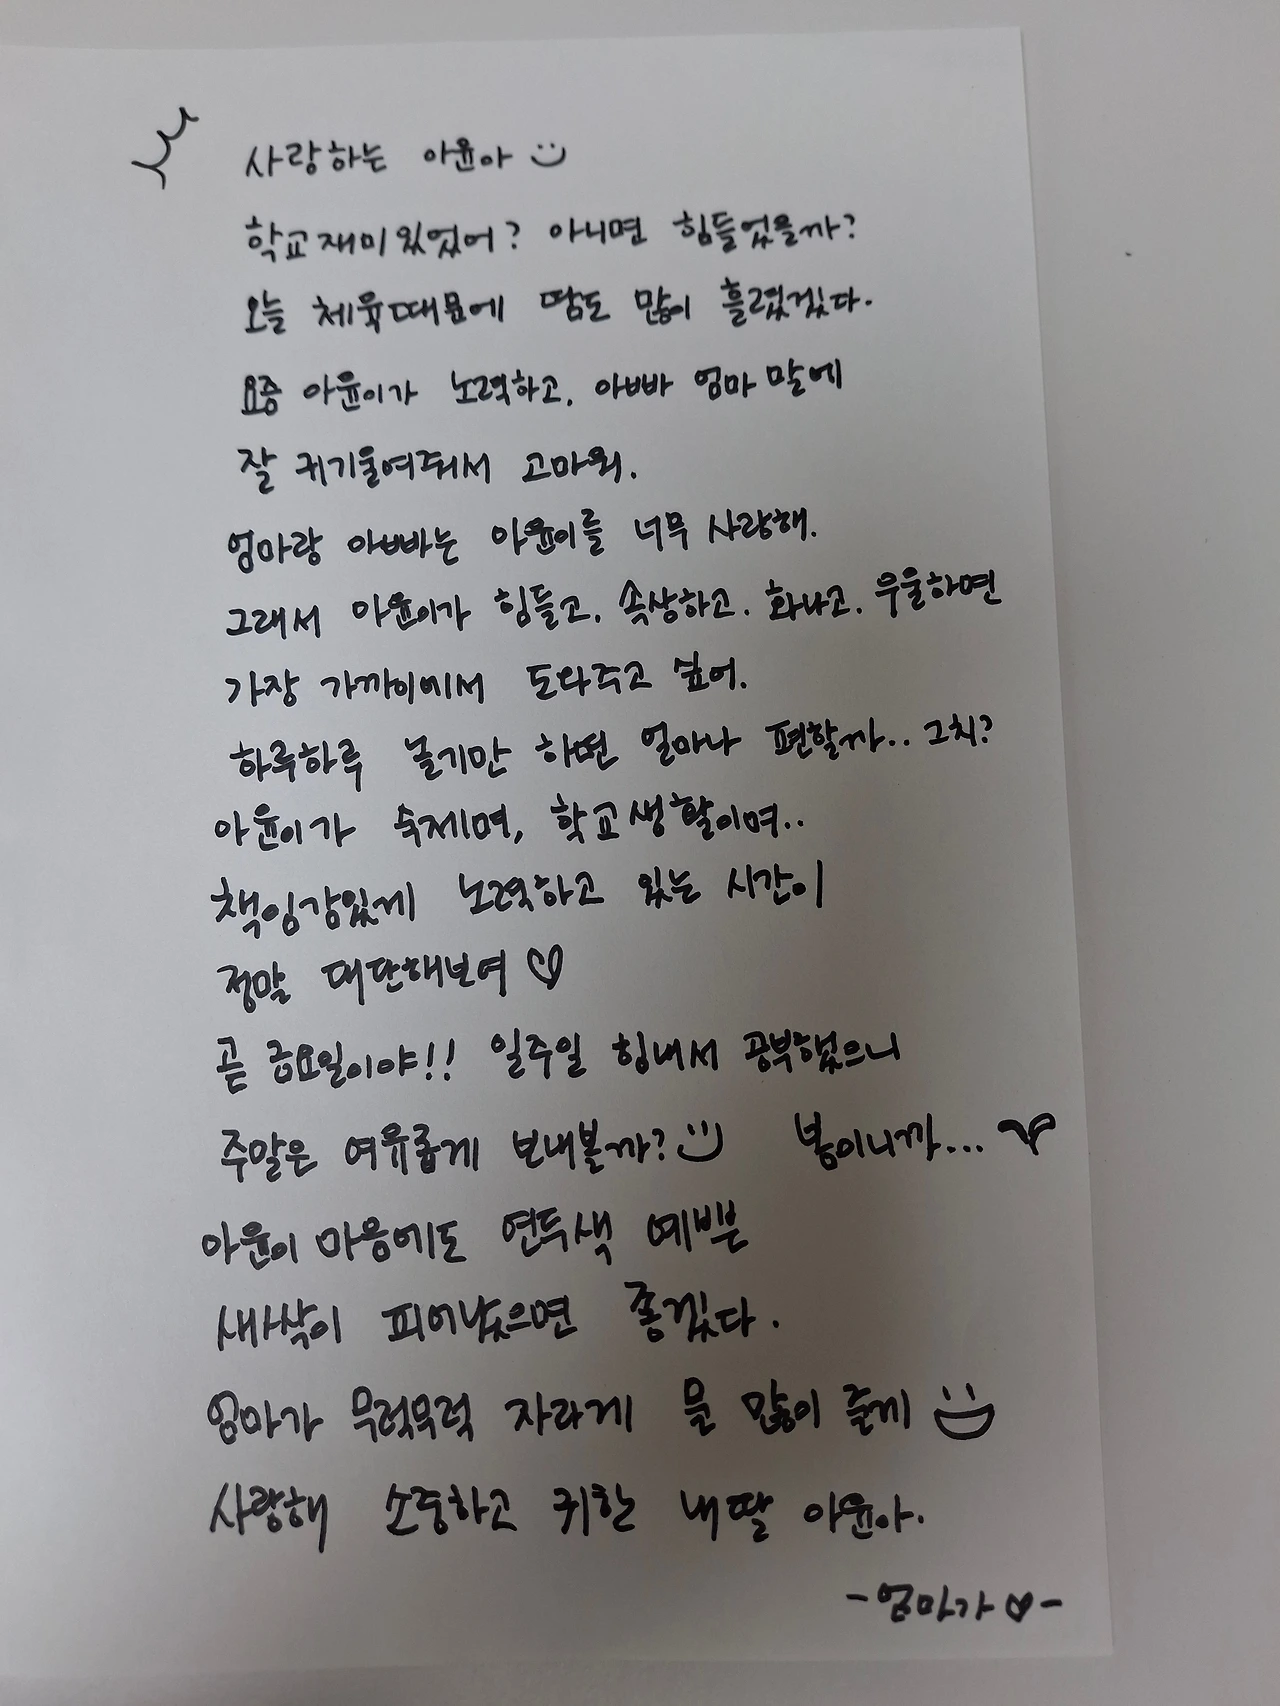 사랑하는 아윤아
학교 재미있었어? 아니면 힘들었을까?
오늘 체육때문에 땀도 많이 흘렸겠다.
요즘 아윤이가 노력하고, 아빠 엄마 말에
잘 귀기울여줘서 고마워.
엄마랑 아빠는 아윤이를 너무 사랑해.
그래서 아윤이가 힘들고, 속상하고, 화나고, 우울하면
가장 가까이에서 도와주고 싶어.
하루하루 놀기만 하면 얼마나 편할까.. 그치?
아윤이가 숙제며, 학교생활이며..
책임감있게 노력하고 있는 시간이
정말 대단해보여 ♡
곧 금요일이야!! 일주일 힘내서 공부했으니
주말은 여유롭게 보내볼까? 봄이니까...
아윤이 마음에도 연두색 예쁜
새싹이 피어났으면 좋겠다.
엄마가 무럭무럭 자라게 물 많이 줄게
사랑해 소중하고 귀한 내딸 아윤아.
- 엄마가 ♡ -